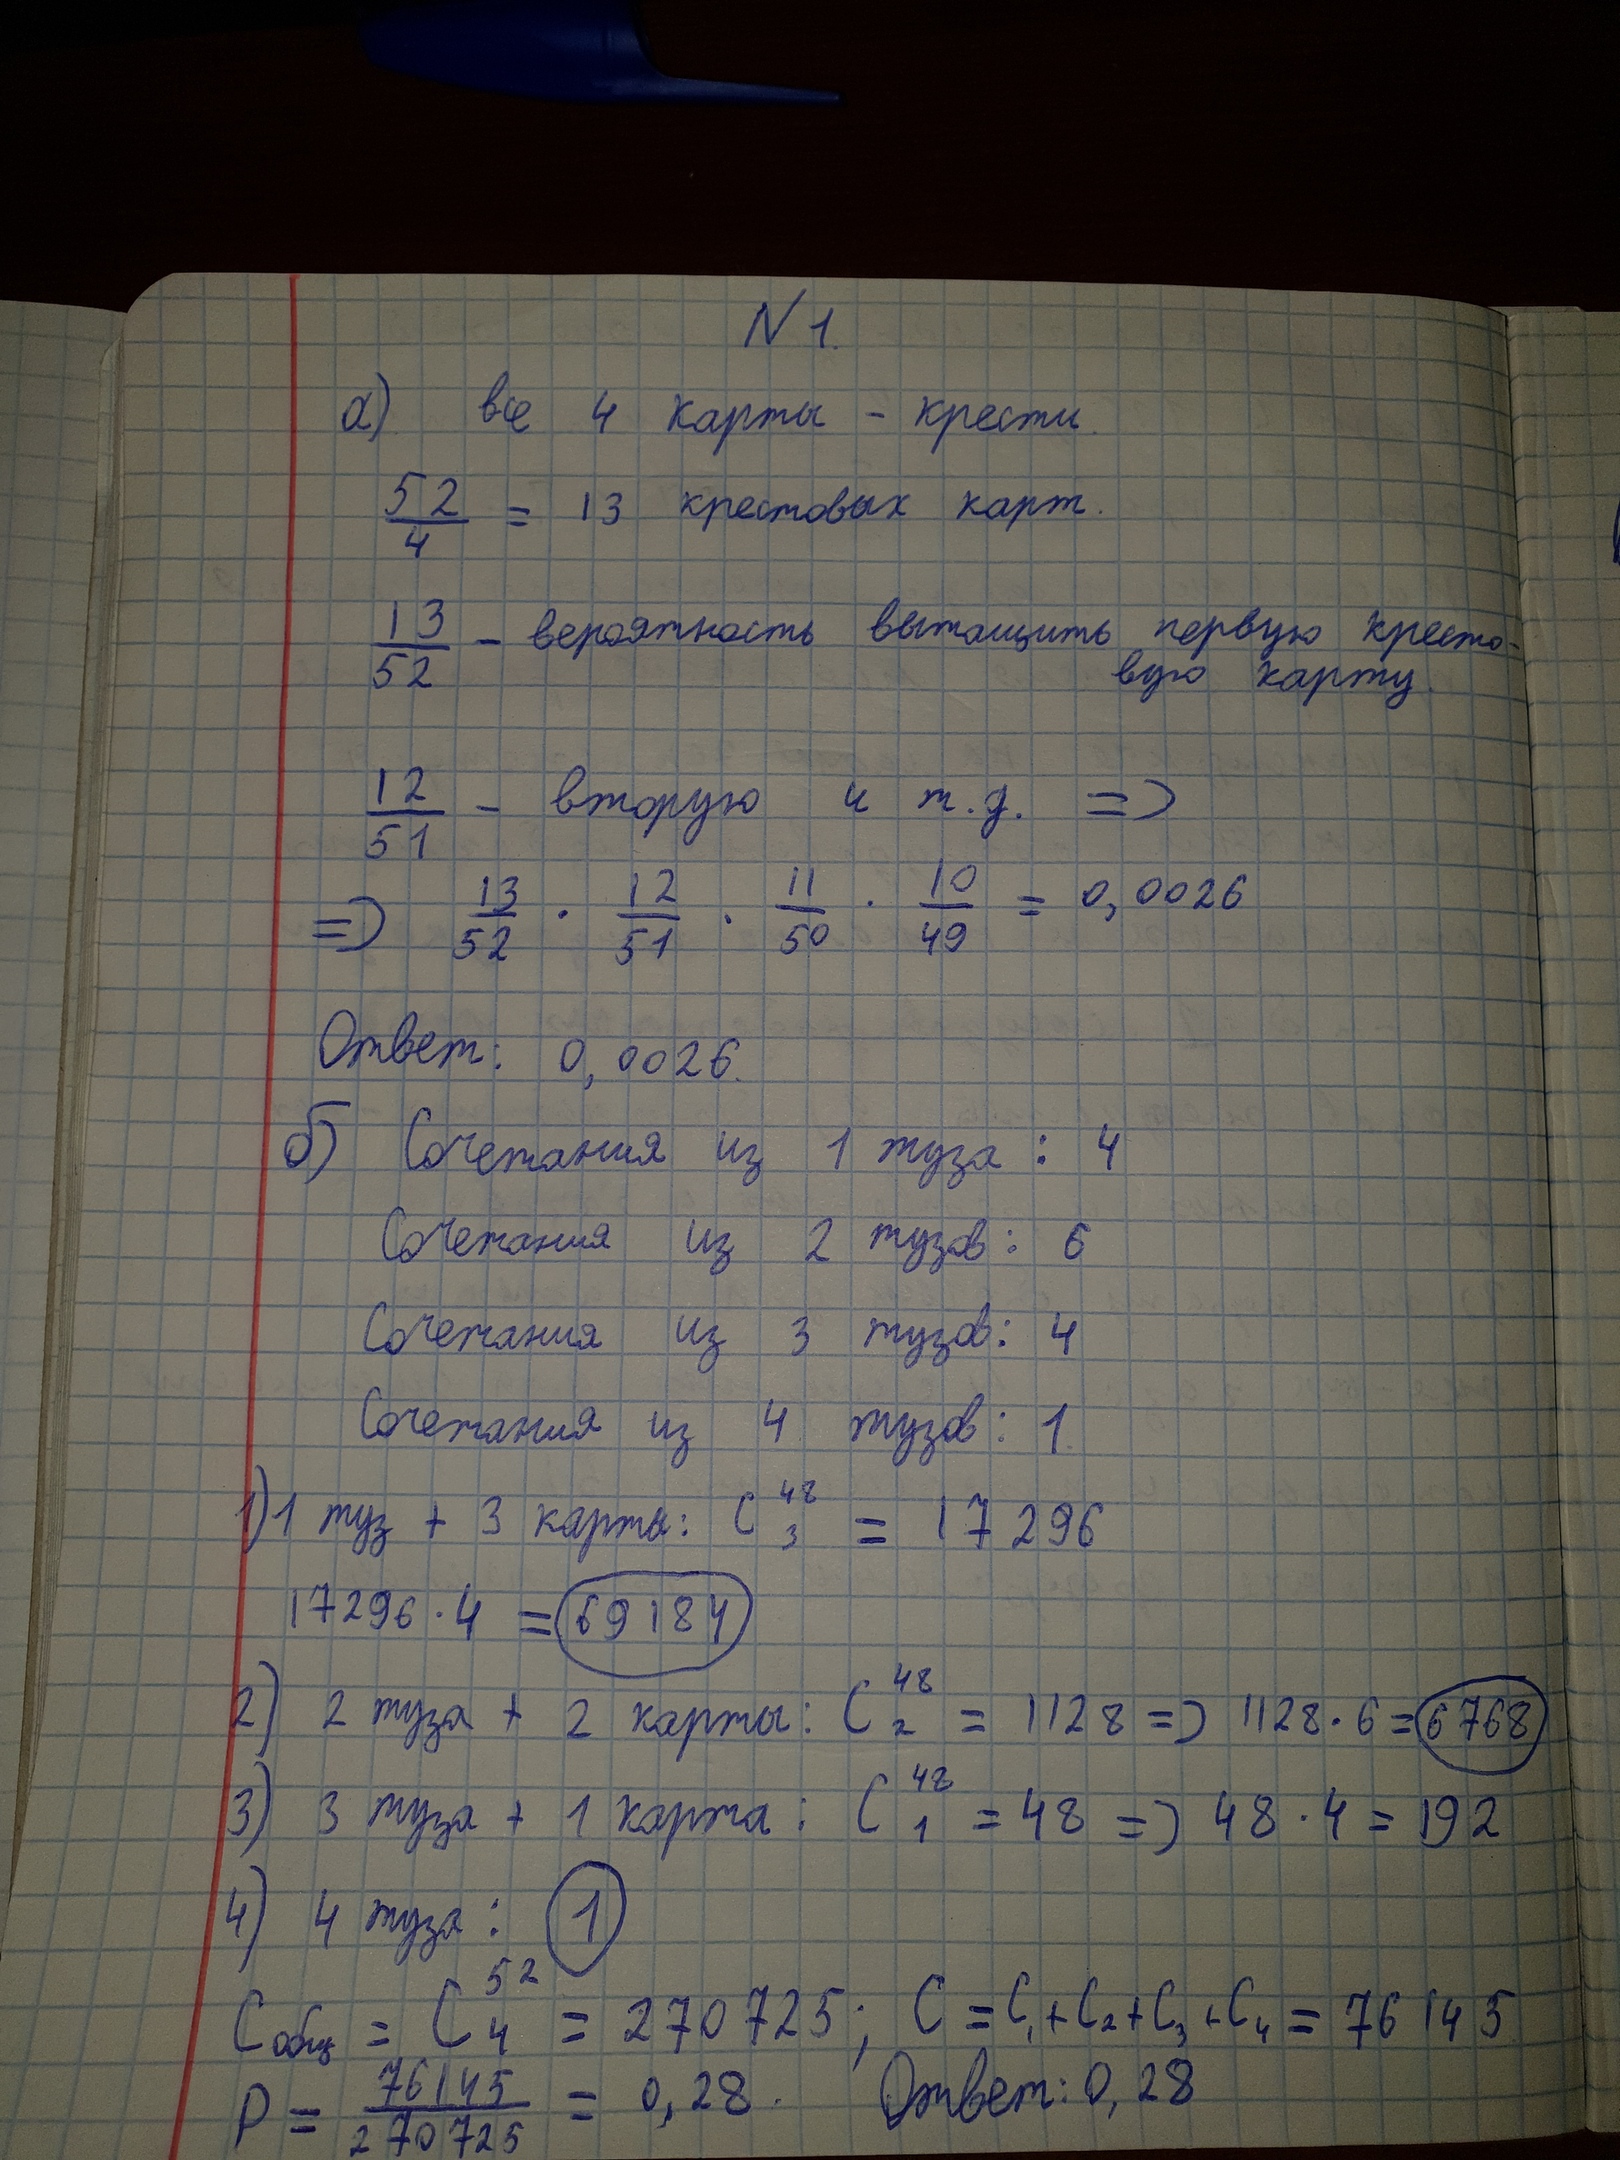 N 1.
а) все 4 карты - крести.
52/4 = 13 крестовых карт.
13/52 - вероятность вытащить первую кресто-
вую карту.
12/51 - вторую и т.д. =>
=> 13/52 · 12/51 · 11/50 · 10/49 = 0,0026
Ответ: 0,0026.
б) Сочетания из 1 туза : 4
Сочетания из 2 тузов: 6
Сочетания из 3 тузов: 4
Сочетания из 4 тузов: 1.
1) 1 туз + 3 карты: C₃⁴⁸ = 17296
17296 · 4 = 69184
2) 2 туза + 2 карты: C₂⁴⁸ = 1128 => 1128 · 6 = 6768
3) 3 туза + 1 карта : C₁⁴⁸ = 48 => 48 · 4 = 192
4) 4 туза : 1
Cобщ = C₄⁵² = 270725; C = C₁ + C₂ + C₃ + C₄ = 76145
P = 76145/270725 = 0,28. Ответ: 0,28